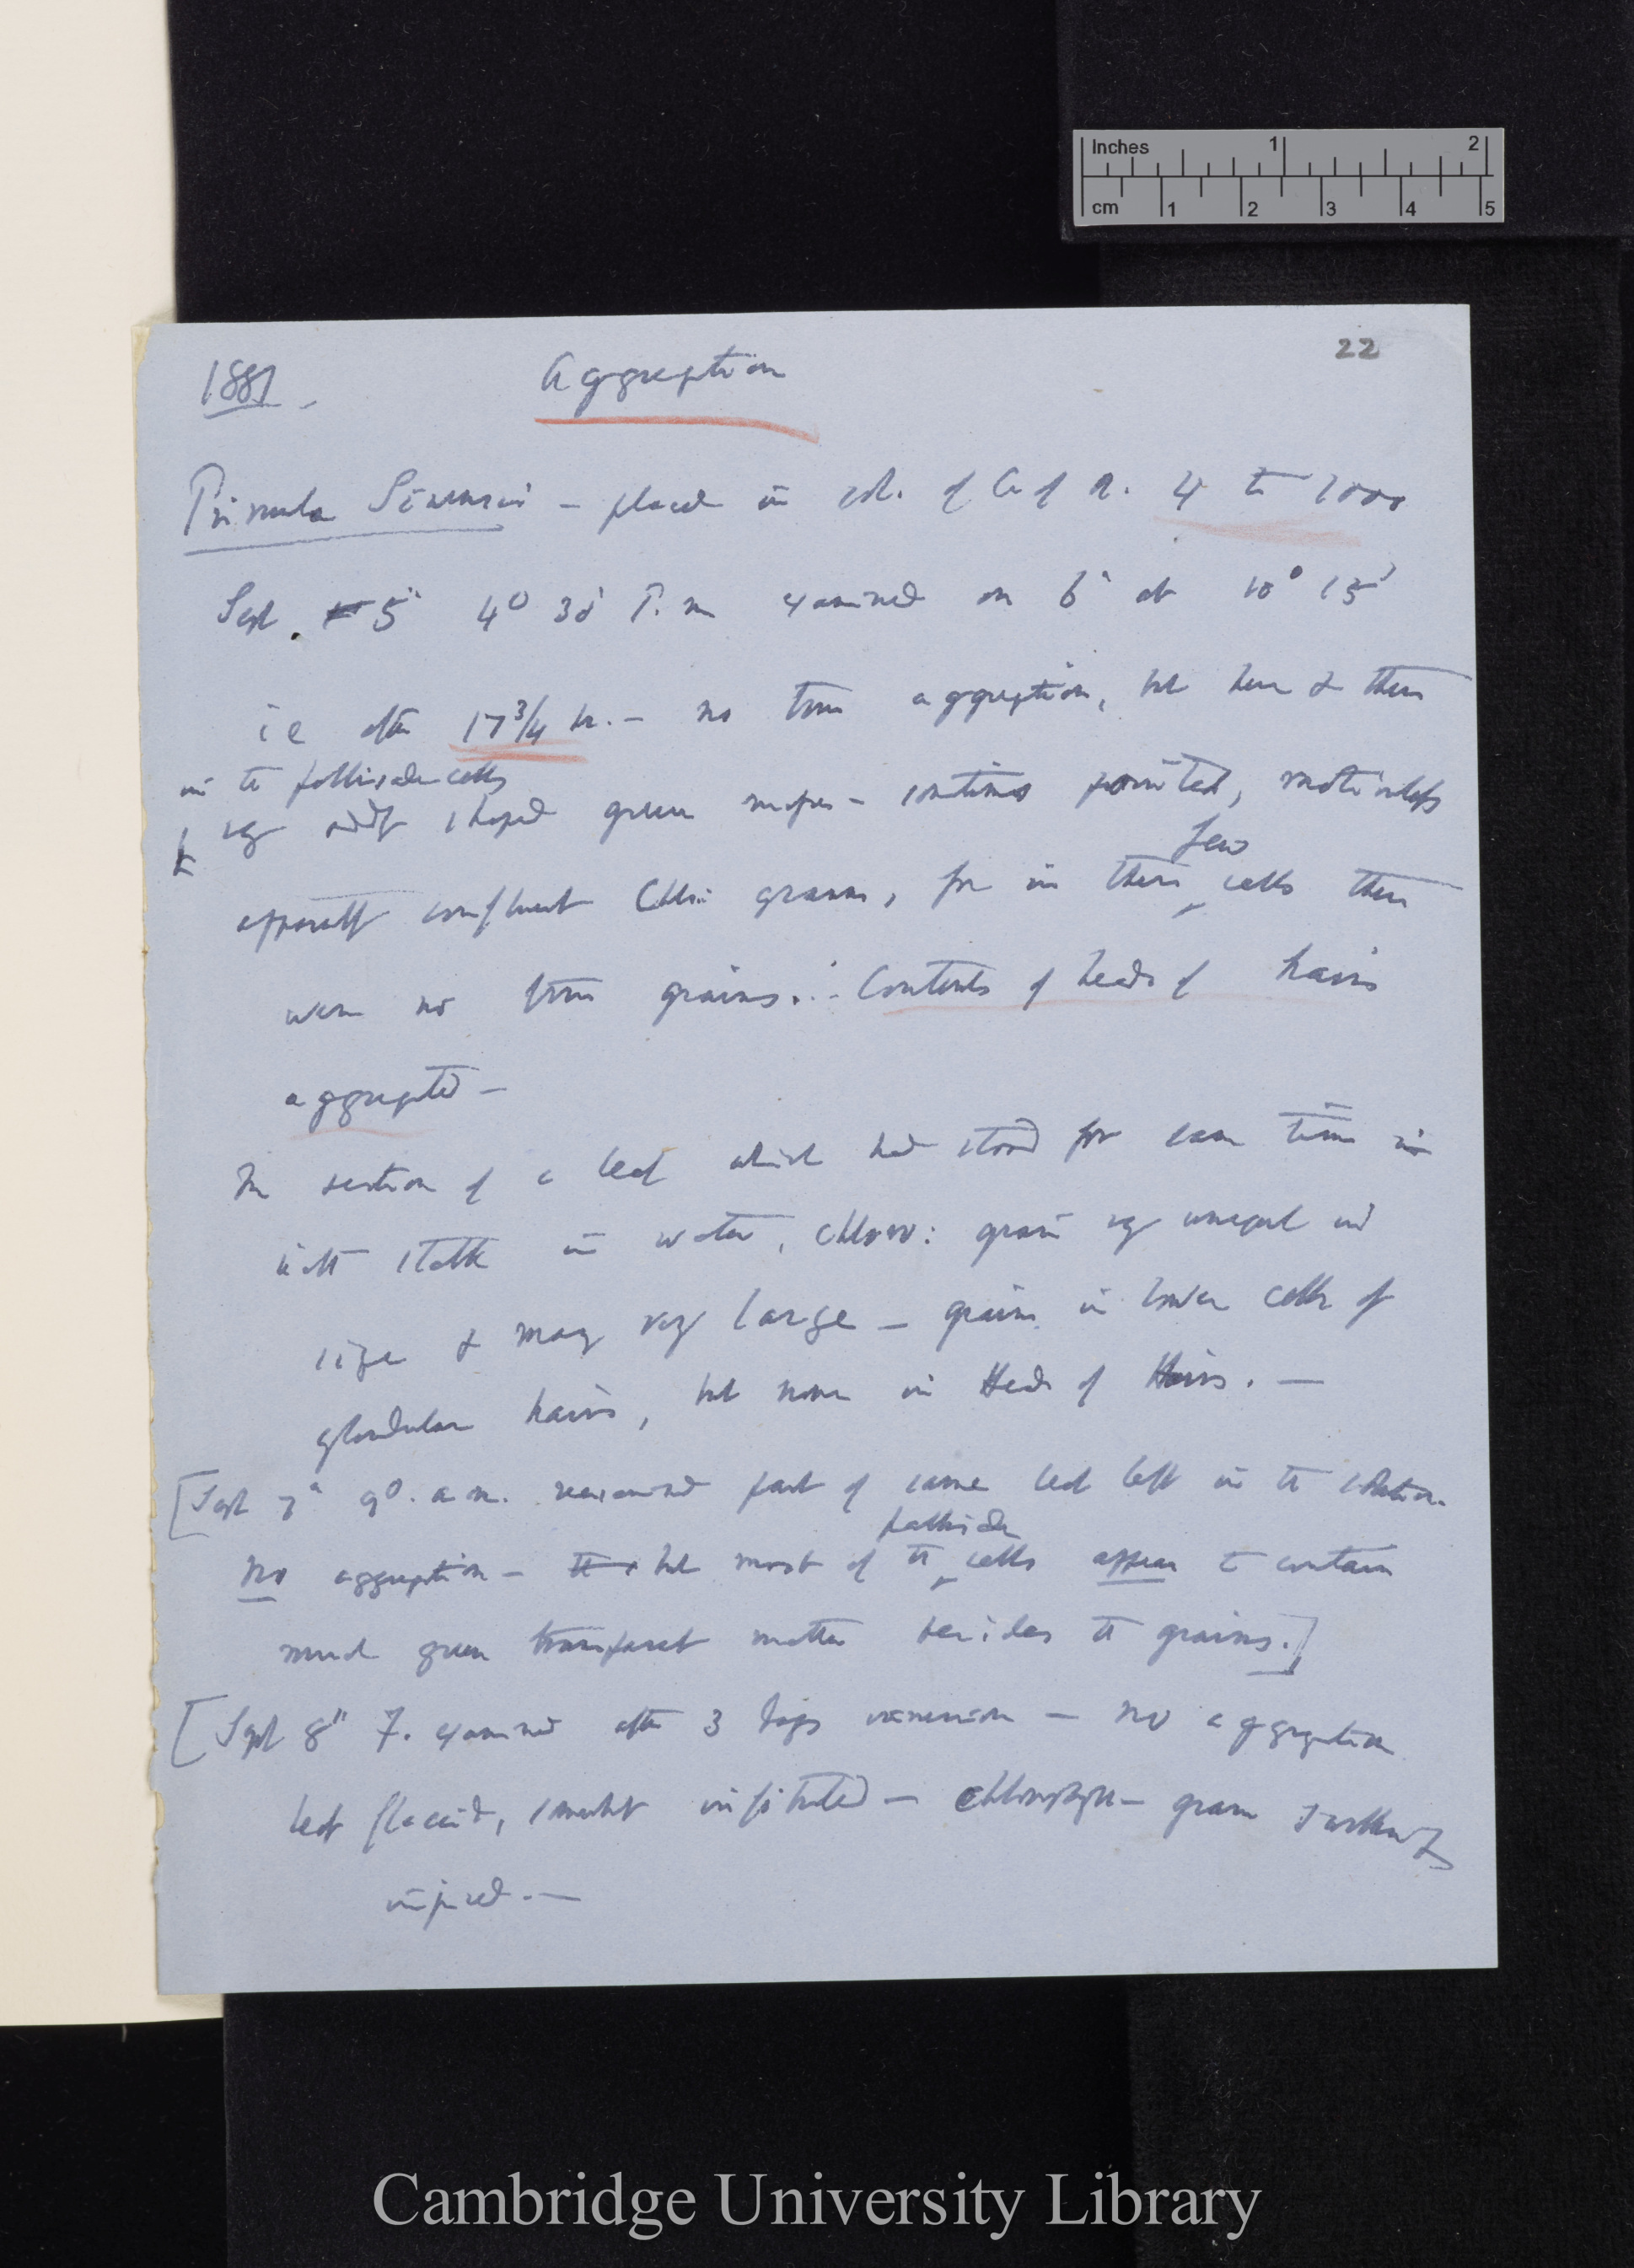 Inches 1 2
cm 1 2 3 4 5
22
1881. Aggregation
Primula Sinensis – placed in sol. of C. of A. 4 to 1000
Sept. 5th 4° 30' P.m examined on 6th at 10° 15'
i e after 17 3/4 h. – no true aggregation, but here & there
in the pallisade cells
very oddly shaped green masses – sometimes pointed, motionless
few
apparently confluent Chlo: grains, for in these cells there
were no free grains. Contents of heads of hairs
aggregated –
In section of a leaf which had stood for some time in
with stalk in water, chloro: grains very unequal in
size & many very large – grains in lower cells of
glandular hairs, but none in Heads of Hairs. —
[Sept 7th 9°. a m. reexamined part of same leaf left in the solution.
pallisade
No aggregation – but most of the cells appear to contain
much green transparent matter besides the grains.]
[Sept 8th 7. examined after 3 days immersion – no aggregation
leaf flaccid, somewhat infiltrated – chlorophyll – grains
injured. —
Cambridge University Library